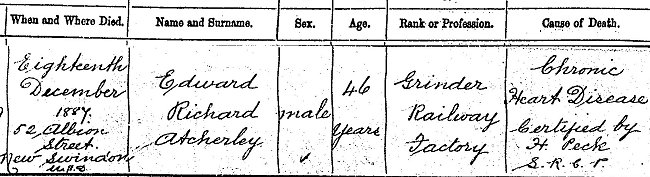 When and Where Died.
Name and Surname.
Sex.
Age.
Rank or Profession.
Cause of Death.
Eighteenth
December
1887
52 Albion
Street
New Swindon
U.S.D.
Edward
Richard
Atcherley
male
46
Years
Grinder
Railway
Factory
Chronic
Heart Disease
Certified by
H. Peck